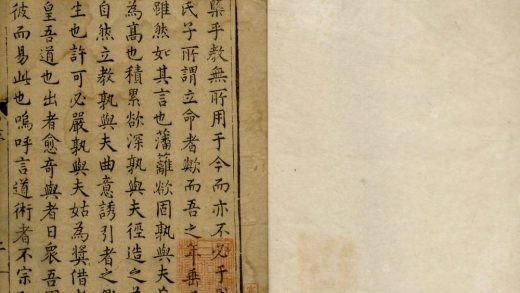 槩乎教無所用于今而亦不必于
氏子所謂立命者歟而吾之年垂
雖然如其言也藩籬欲固孰與夫
為髙也積累欲深孰與夫徑造之
自然立教孰與夫曲意誘引者之
生也許可必嚴孰與夫姑為奬借
皇吾道也出者愈竒與者日衆吾
彼而易此也嗚呼言道術者不宗